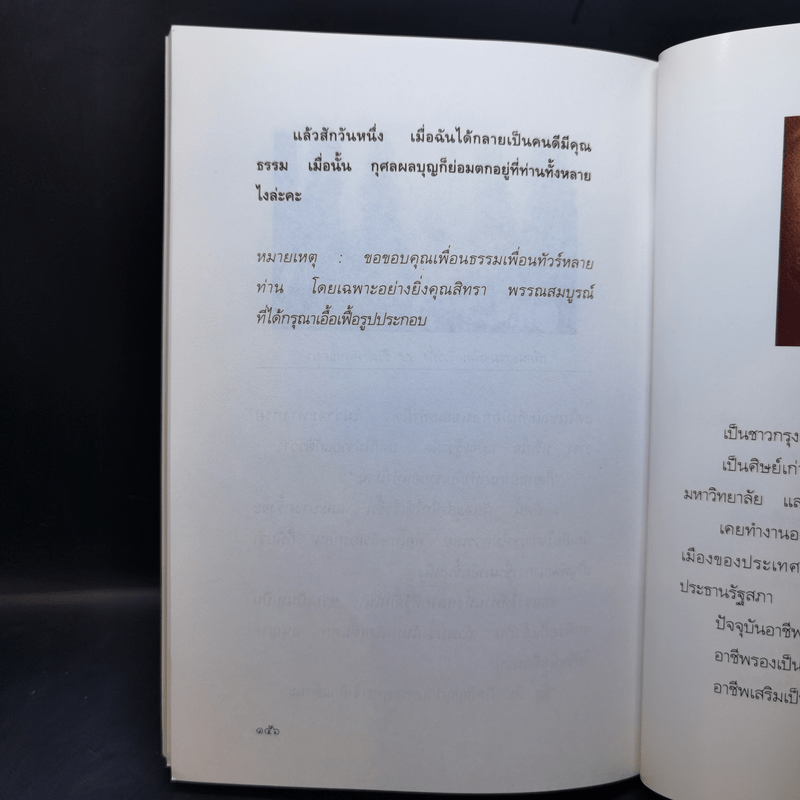 แล้วสักวันหนึ่ง เมื่อฉันได้กลายเป็นคนดีมีคุณ
ธรรม เมื่อนั้น กุศลผลบุญก็ย่อมตกอยู่ที่ท่านทั้งหลาย
ไงล่ะคะ
หมายเหตุ : ขอขอบคุณเพื่อนธรรมเพื่อนทัวร์หลาย
ท่าน โดยเฉพาะอย่างยิ่งคุณสิทรา พรรณสมบูรณ์
ที่ได้กรุณาเอื้อเฟื้อรูปประกอบ
๑๕๖
เป็นชาวกรุง
เป็นศิษย์เก่า
มหาวิทยาลัย แล
เคยทำงานอ
เมืองของประเทศ
ประธานรัฐสภา
ปัจจุบันอาชีพ
อาชีพรองเป็น
อาชีพเสริมเป็